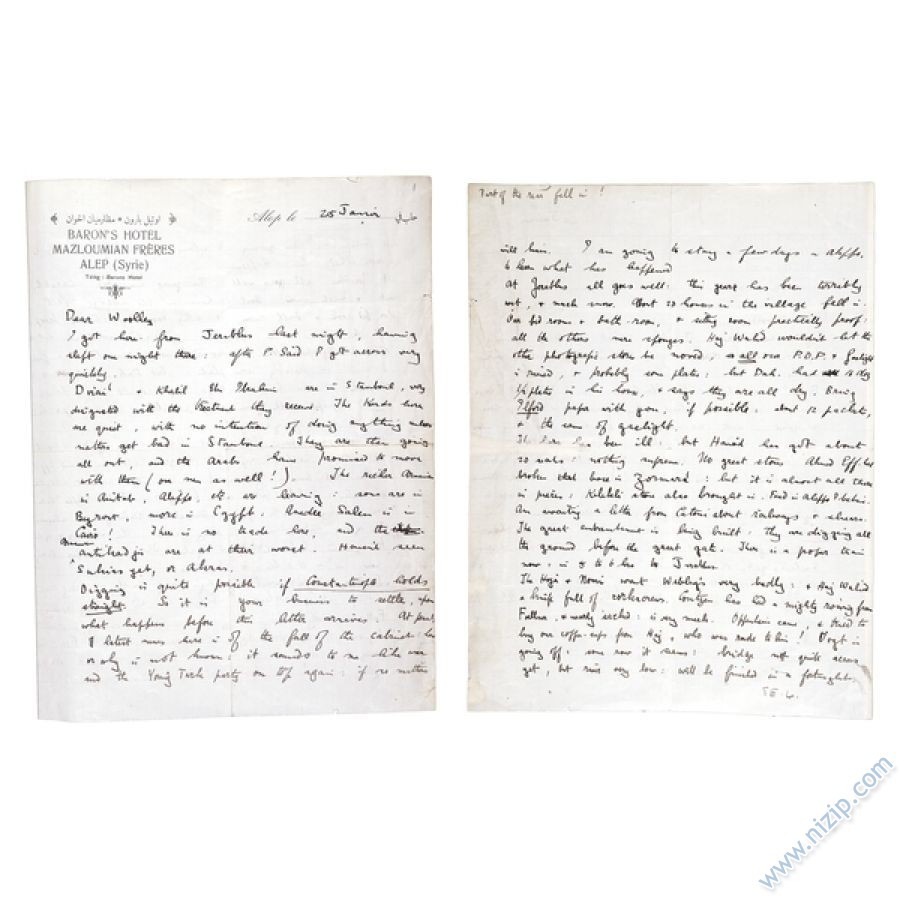 اوتيل بارون * مظلوميان اخوان
BARON'S HOTEL
MAZLOUMIAN FRÈRES
ALEP (Syrie)
Télég : Barons Hotel
Alep le 25 Janvier حلب في
1
Dear Woolley
I got here from Jerablus last night, having
slept one night there: after P. Said I got across very
quickly.
& Khalil are in Stamboul, very
disgusted with the treatment they receive. The Kurds here
are quiet, with no intention of doing anything unless
matters get bad in Stamboul. They are then going
all out, and the Arabs have promised to move
with them (our men as well!). The richer Armenians
in Aintab, Aleppo, etc. are leaving: some are in
Beyrout, more in Egypt. Salem is in
Cairo! There is no trade here, and the
antikadjis are at their worst. Hamoudi seen
Subias yet, or
Digging is quite possible if Constantinople holds
straight. So it is your business to settle, upon
what happens before this letter arrives. At present
latest news here is of the fall of the cabinet: how
or why is not known: it sounds to me like war
and the Young Turk party on top again: if so matters
Part of the roof fell in!
will hum. I am going to stay a few days in Aleppo,
to hear what has happened
At Jerablus all goes well: this year has been terribly
wet, & much snow. About 20 houses in the village fell in.
Our bed room & bath-room, & sitting room practically proof:
all the others mere sponges. Haj Wahid wouldn't let the
other photographic store be moved, so all our P.O.P. & Gaslight
is ruined, & probably some plates: but Dah. had 18 doz
1/1 plates in his house, & says they are all dry. Bring
Ilford paper with you, if possible: about 12 packets,
& the same of gaslight.
The has been ill: but Hamoudi has got about
20 nails: nothing supreme. No great stones Ahmed Eff. has
broken that horse in: but it is almost all there
in pieces: Kilabli also brought in. Find in Aleppo
Am awaiting a letter from about railways & shares.
The great embankment is being built: they are digging all
the ground before the great gate. There is a proper train
now, in 5 to 6 hrs to Jerablus.
The Hoja & Nouri want Webleys very badly: & Haj Wahid
a knife full of corkscrews. Contzen has had a mighty rowing from
& nearly sacked: is very meek. Oppenheim came, & tried to
buy our coffee-cups from Haj, who was rude to him! Vogt is
going off: some row it seems: bridge not quite across
yet, but river very low: will be finished in a fortnight.
T.E.L.
www.nizip.com